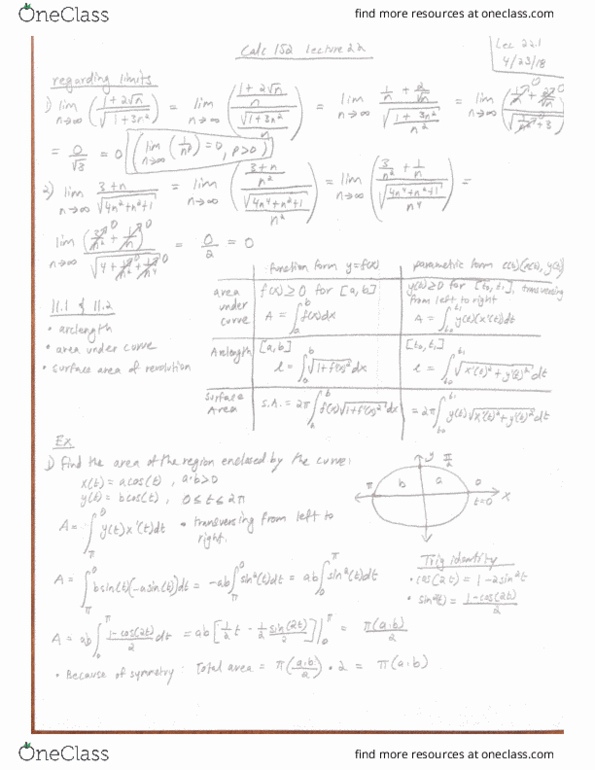 OneClass
find more resources at oneclass.com
Calc 152 lecture 22
Lec 22.1
4/23/18
regarding limits
1) lim n→∞ (1+2√n / √(1+3n²)) = lim n→∞ ((1+2√n)/n / (√(1+3n²)/n)) = lim n→∞ (1/n + 2/√n) / √((1+3n²)/n²) = lim n→∞ (1/n⁰ + 2/√n⁰) / √(1/n²⁰ + 3)
= 0/√3 = 0 (lim n→∞ (1/nᵖ) = 0, p>0)
2) lim n→∞ 3+n / √(4n⁴+n²+1) = lim n→∞ ((3+n)/n² / (√(4n⁴+n²+1)/n²)) = lim n→∞ ((3/n² + 1/n) / √((4n⁴+n²+1)/n⁴)) =
lim n→∞ (3/n²⁰ + 1/n⁰) / √(4 + 1/n²⁰ + 1/n⁴⁰) = 0/2 = 0
function form y=f(x)
parametric form c(t)(x(t), y(t))
11.1 & 11.2
• arclength
• area under curve
• surface area of revolution
area under curve
f(x) ≥ 0 for [a, b]
A = ∫ₐᵇ f(x)dx
y(t) ≥ 0 for [t₀, t₁], transversing from left to right
A = ∫ₜ₀ᵗ¹ y(t)(x'(t))dt
Arclength
[a, b]
ℓ = ∫ₐᵇ √(1+f'(x)²) dx
[t₀, t₁]
ℓ = ∫ₜ₀ᵗ¹ √(x'(t)² + y'(t)²) dt
Surface Area
S.A. = 2π ∫ₐᵇ f(x)√(1+f'(x)²) dx
= 2π ∫ₜ₀ᵗ¹ y(t)√(x'(t)² + y'(t)²) dt
Ex
1) Find the area of the region enclosed by the curve:
x(t) = acos(t) , a·b>0
y(t) = bcos(t) , 0≤t≤2π
y π/2
π b a 0
t=0 x
A = ∫π⁰ y(t) x'(t)dt • transversing from left to right.
A = ∫π⁰ bsin(t)(-asin(t))dt = -ab∫π⁰ sin²(t)dt = ab∫₀π sin²(t)dt
Trig identity
• cos(2t) = 1-2sin²t
• sin²(t) = 1-cos(2t) / 2
A = ab∫₀π 1-cos(2t)/2 dt = ab[1/2 t - 1/2 sin(2t)/2]|₀π = π(a·b)/2
• Because of symmetry: Total area = π(a·b/2) • 2 = π(a·b)
OneClass
find more resources at oneclass.com